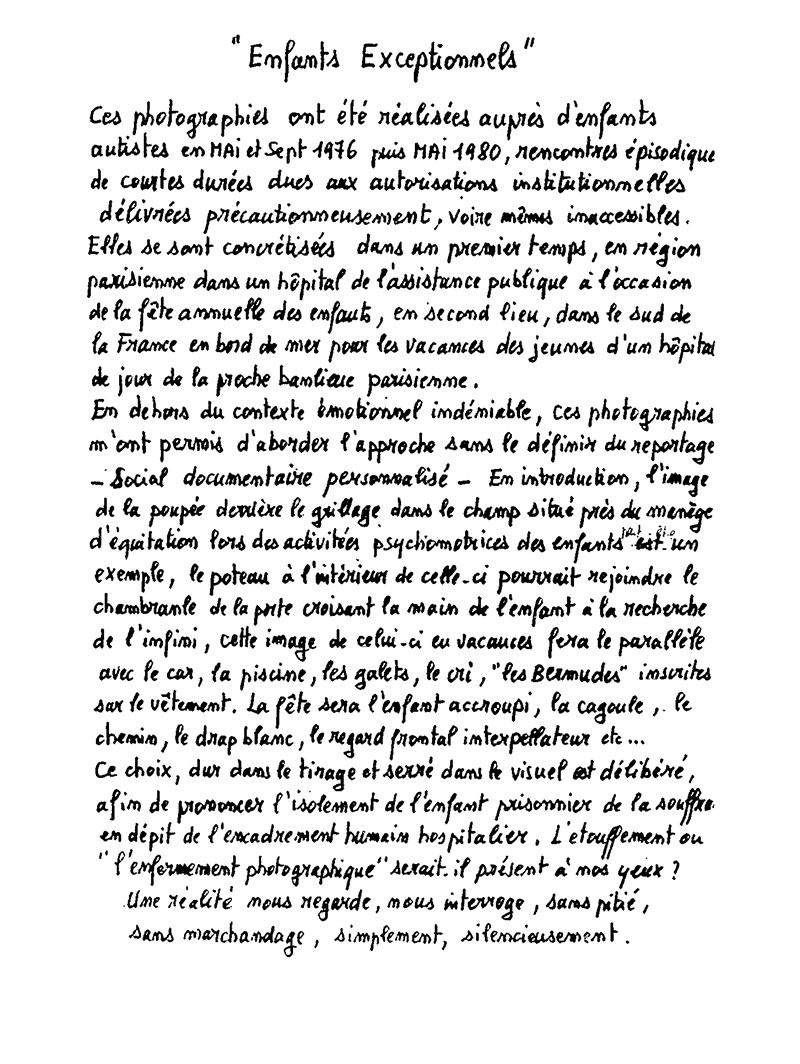 "Enfants Exceptionnels"
Ces photographies ont été réalisées auprès d'enfants
autistes en MAi et Sept 1976 puis MAI 1980, rencontres épisodique
de courtes durées dues aux autorisations institutionnelles
délivrées précautionneusement, voire mêmes inaccessibles.
Elles se sont concrétisées dans un premier temps, en région
parisienne dans un hôpital de l'assistance publique à l'occasion
de la fête annuelle des enfants, en second lieu, dans le sud de
la France en bord de mer pour les vacances des jeunes d'un hôpital
de jour de la proche banlieue parisienne.
En dehors du contexte émotionnel indéniable, ces photographies
m'ont permis d'aborder l'approche sans le définir du reportage
- Social documentaire personnalisé - En introduction, l'image
de la poupée derrière le grillage dans le champ situé près du manège
d'équitation lors des activitées psychomotrices des enfants est un
exemple, le poteau à l'intérieur de celle-ci pourrait rejoindre le
chambranle de la porte croisant la main de l'enfant à la recherche
de l'infini, cette image de celui-ci en vacances fera le parallèle
avec le car, la piscine, les galets, le cri, "les Bermudes" inscrites
sur le vêtement. La fête sera l'enfant accroupi, la cagoule, le
chemin, le drap blanc, le regard frontal interpellateur etc...
Ce choix, dur dans le tirage et serré dans le visuel est délibéré,
afin de prononcer l'isolement de l'enfant prisonnier de la
en dépit de l'encadrement humain hospitalier. L'etouffement ou
"l'enfermement photographique" serait-il présent à nos yeux ?
Une réalité nous regarde, nous interroge, sans pitié,
sans marchandage, simplement, silencieusement.